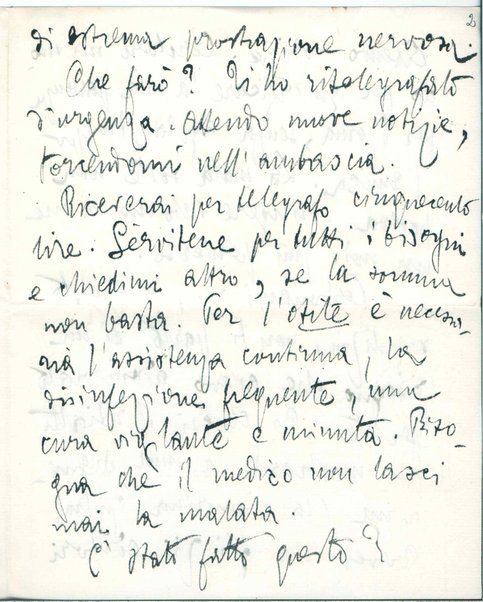 2
di estrema prostrazione nervosa.
Che farò? Ti ho ritelegrafato
d'urgenza. Attendo nuove notizie,
torcendomi nell'ambascia.
Riceverai per telegrafo cinquecento
lire. Sèrvitene per tutti i bisogni
e chiedimi altro, se la somma
non basta. Per l'otite è necessa-
ria l'assistenza continua, la
disinfezione frequente, una
cura vigilante e minuta. Biso-
gna che il medico non lasci
mai la malata.
È stato fatto questo?